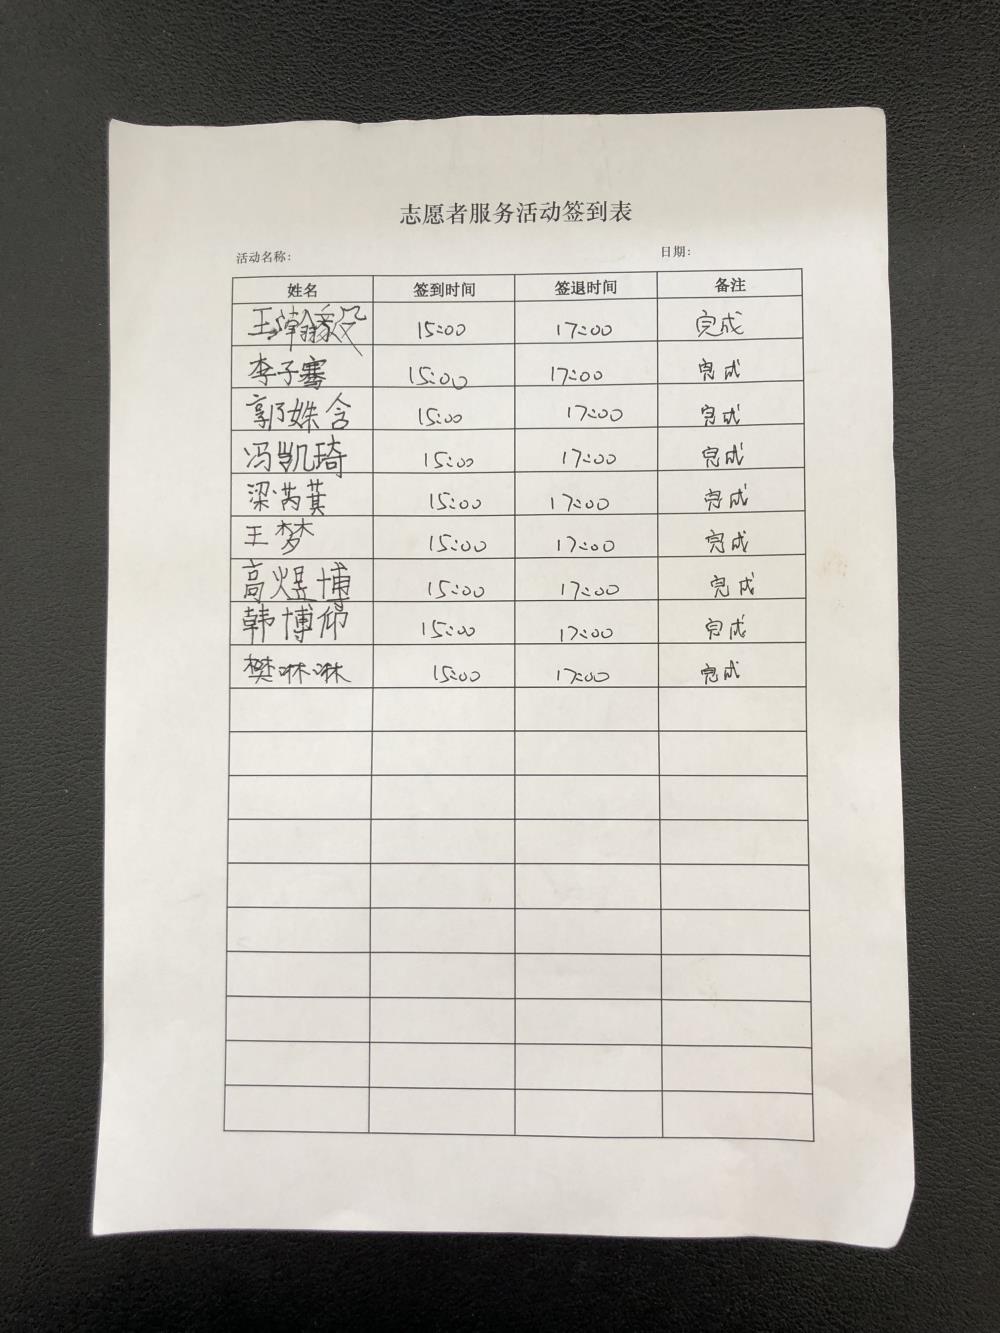 志愿者服务活动签到表
活动名称: 日期:
姓名 签到时间 签退时间 备注
王瀚毅 15:00 17:00 完成
李子骞 15:00 17:00 完成
郭姝含 15:00 17:00 完成
冯凯琦 15:00 17:00 完成
梁芮萁 15:00 17:00 完成
王梦 15:00 17:00 完成
高煜博 15:00 17:00 完成
韩博 15:00 17:00 完成
樊琳琳 15:00 17:00 完成